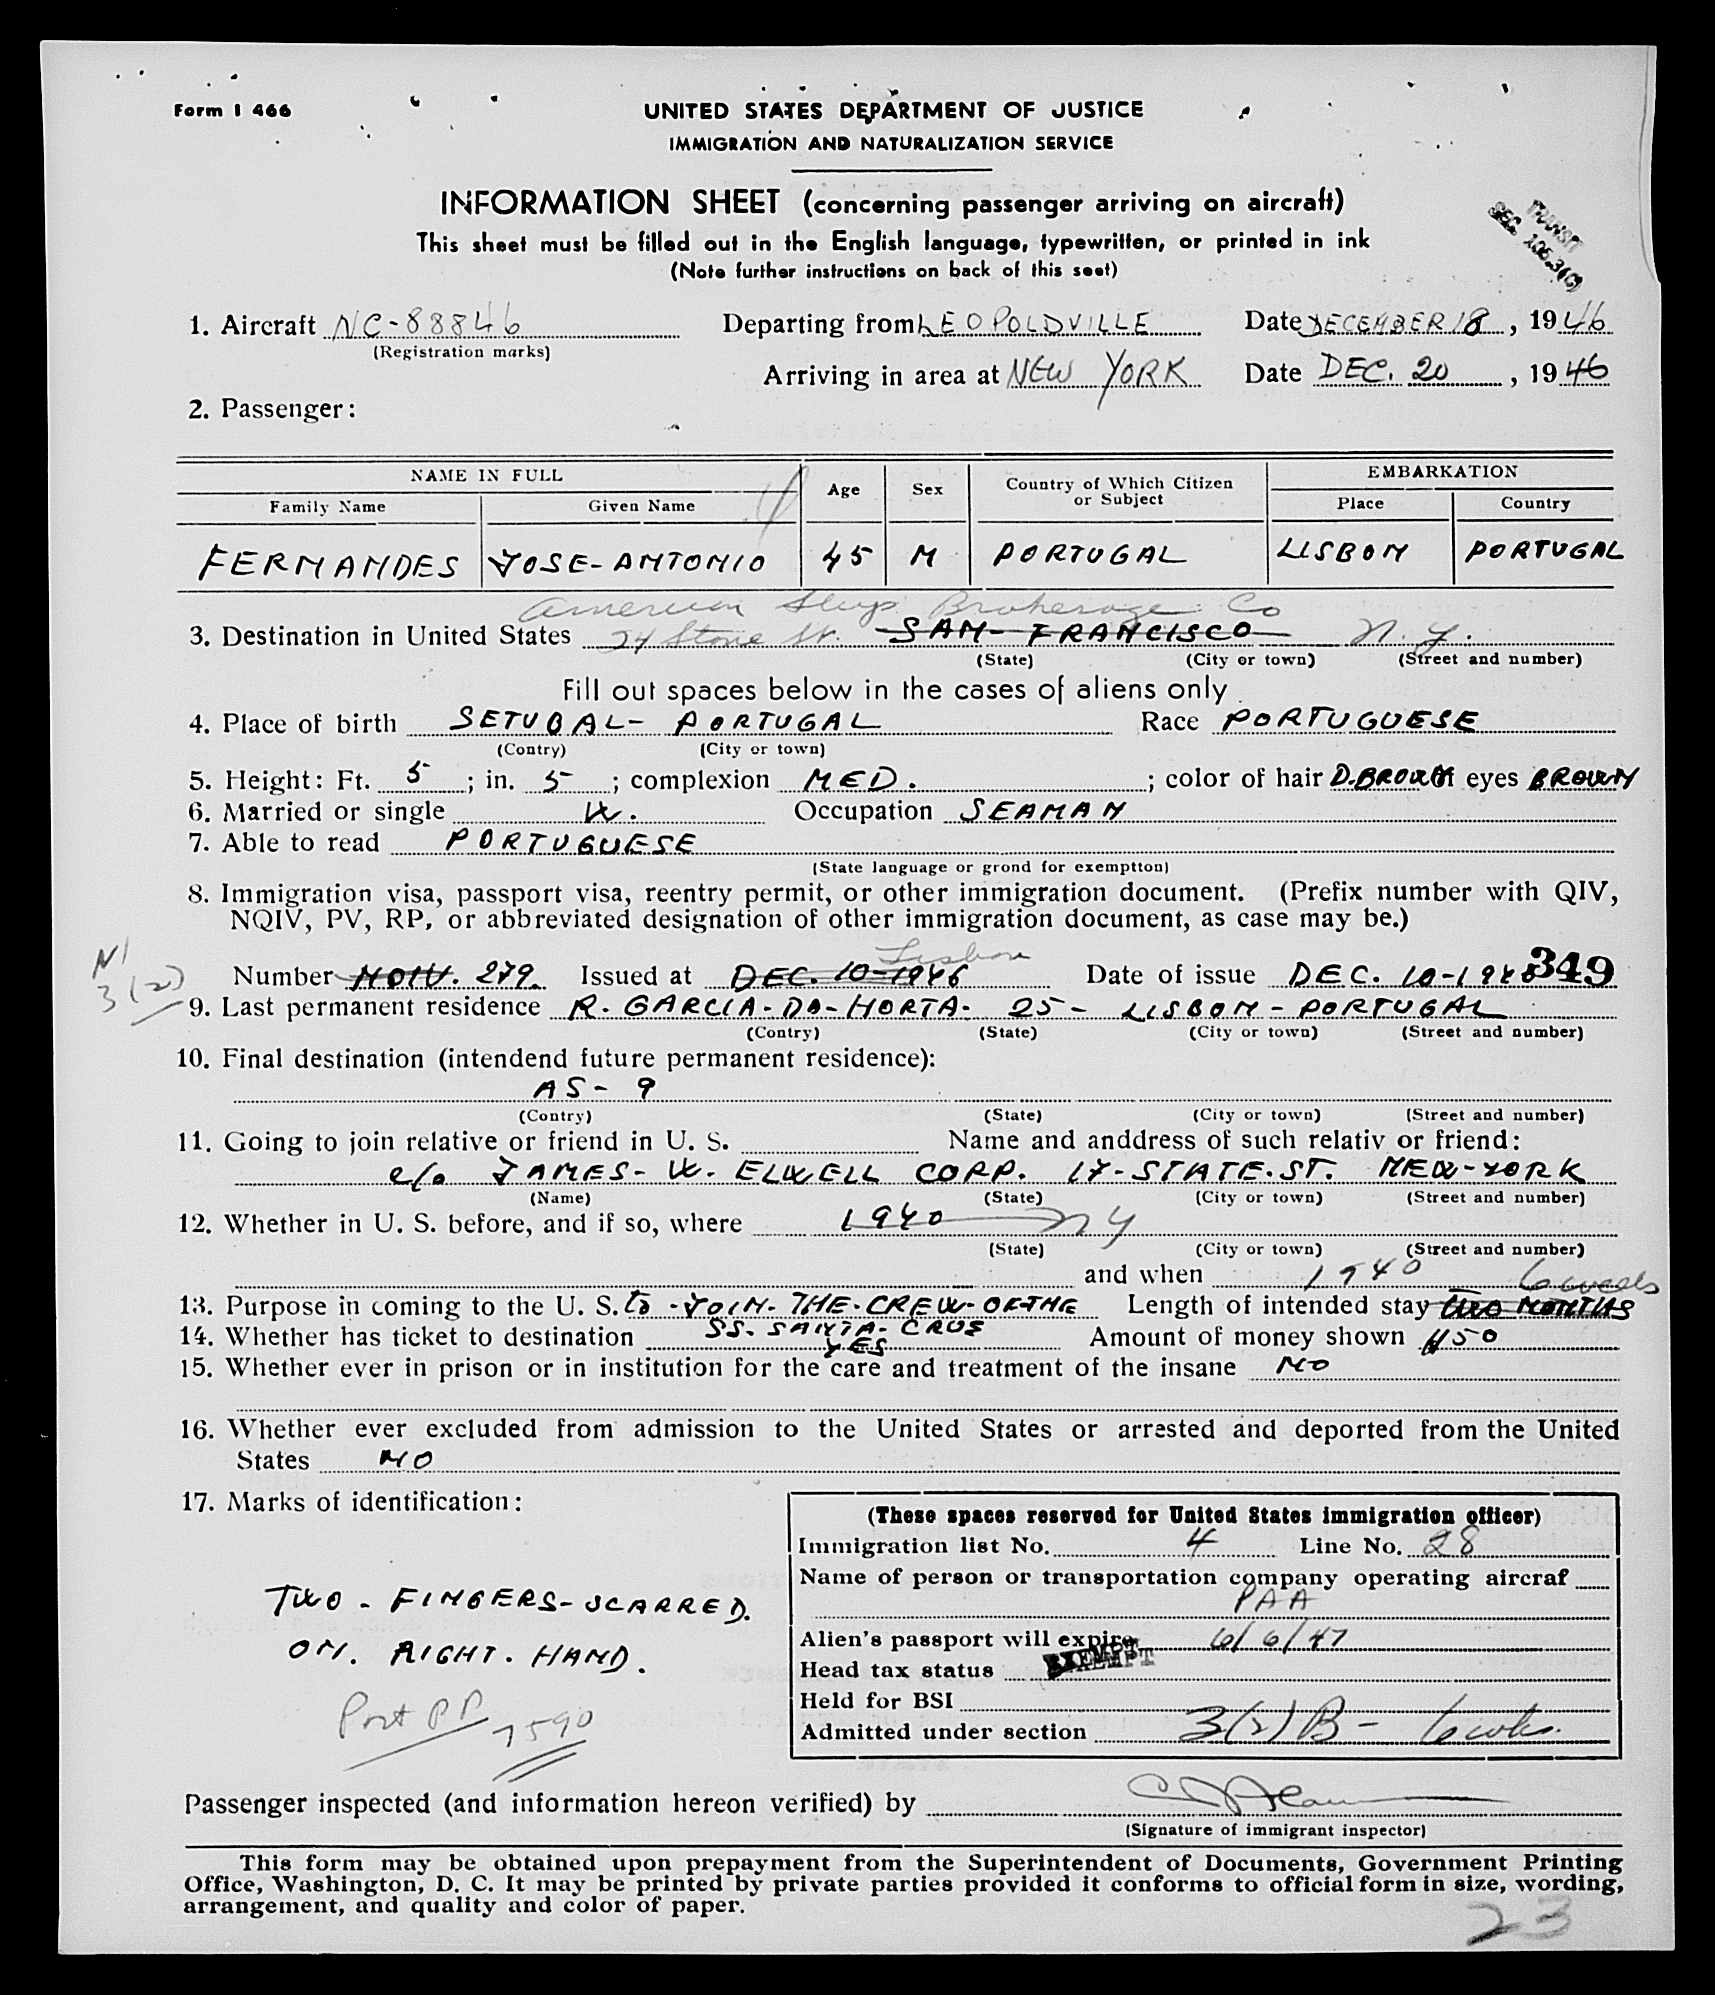 Form I 466
UNITED STATES DEPARTMENT OF JUSTICE
IMMIGRATION AND NATURALIZATION SERVICE
INFORMATION SHEET (concerning passenger arriving on aircraft)
This sheet must be filled out in the English language, typewritten, or printed in ink
(Note further instructions on back of this seet)
TRANSIT
SEC. 106.3(G)
1. Aircraft NC-88846 Departing from LEOPOLDVILLE Date DECEMBER 18, 1946
(Registration marks)
Arriving in area at NEW YORK Date DEC. 20, 1946
2. Passenger:
NAME IN FULL Age Sex Country of Which Citizen or Subject EMBARKATION
Family Name Given Name Place Country
FERNANDES JOSE-ANTONIO 45 M PORTUGAL LISBON PORTUGAL
American Ship Brokerage Co
3. Destination in United States 24 Stone St. SAN-FRANCISCO N.Y.
(State) (City or town) (Street and number)
Fill out spaces below in the cases of aliens only
4. Place of birth SETUBAL- PORTUGAL Race PORTUGUESE
(Contry) (City or town)
5. Height: Ft. 5; in. 5; complexion MED.; color of hair D.BROWN eyes BROWN
6. Married or single W. Occupation SEAMAN
7. Able to read PORTUGUESE
(State language or grond for exemptton)
8. Immigration visa, passport visa, reentry permit, or other immigration document. (Prefix number with QIV,
NQIV, PV, RP, or abbreviated designation of other immigration document, as case may be.)
N1
3(2)
Lisbon
Number NOIV. 279. Issued at DEC. 10-1946 Date of issue DEC. 10-1946 349
9. Last permanent residence R. GARCIA-DA-HORTA- 25- LISBON-PORTUGAL
(Contry) (State) (City or town) (Street and number)
10. Final destination (intendend future permanent residence):
AS- 9
(Contry) (State) (City or town) (Street and number)
11. Going to join relative or friend in U. S. Name and anddress of such relativ or friend:
c/o JAMES-W. ELWELL CORP. 17-STATE.ST. NEW-YORK
(Name) (State) (City or town) (Street and number)
12. Whether in U. S. before, and if so, where 1940 NY
(State) (City or town) (Street and number)
and when 1940 6 weeks
13. Purpose in coming to the U. S. to-JOIN-THE-CREW-OF-THE Length of intended stay two MONTHS
SS. SANTA-CRUS
14. Whether has ticket to destination YES Amount of money shown $50
15. Whether ever in prison or in institution for the care and treatment of the insane NO
16. Whether ever excluded from admission to the United States or arrested and deported from the United
States NO
17. Marks of identification:
TWO-FINGERS-SCARRED.
ON. RIGHT. HAND.
Port PP 7590
(These spaces reserved for United States immigration officer)
Immigration list No. 4 Line No. 28
Name of person or transportation company operating aircraf
PAA
Alien's passport will expire 6/6/47
Head tax status EXEMPT
Held for BSI
Admitted under section 3(2)B- 6 wks.
Passenger inspected (and information hereon verified) by
(Signature of immigrant inspector)
This form may be obtained upon prepayment from the Superintendent of Documents, Government Printing
Office, Washington, D. C. It may be printed by private parties provided it conforms to official form in size, wording,
arrangement, and quality and color of paper.
23